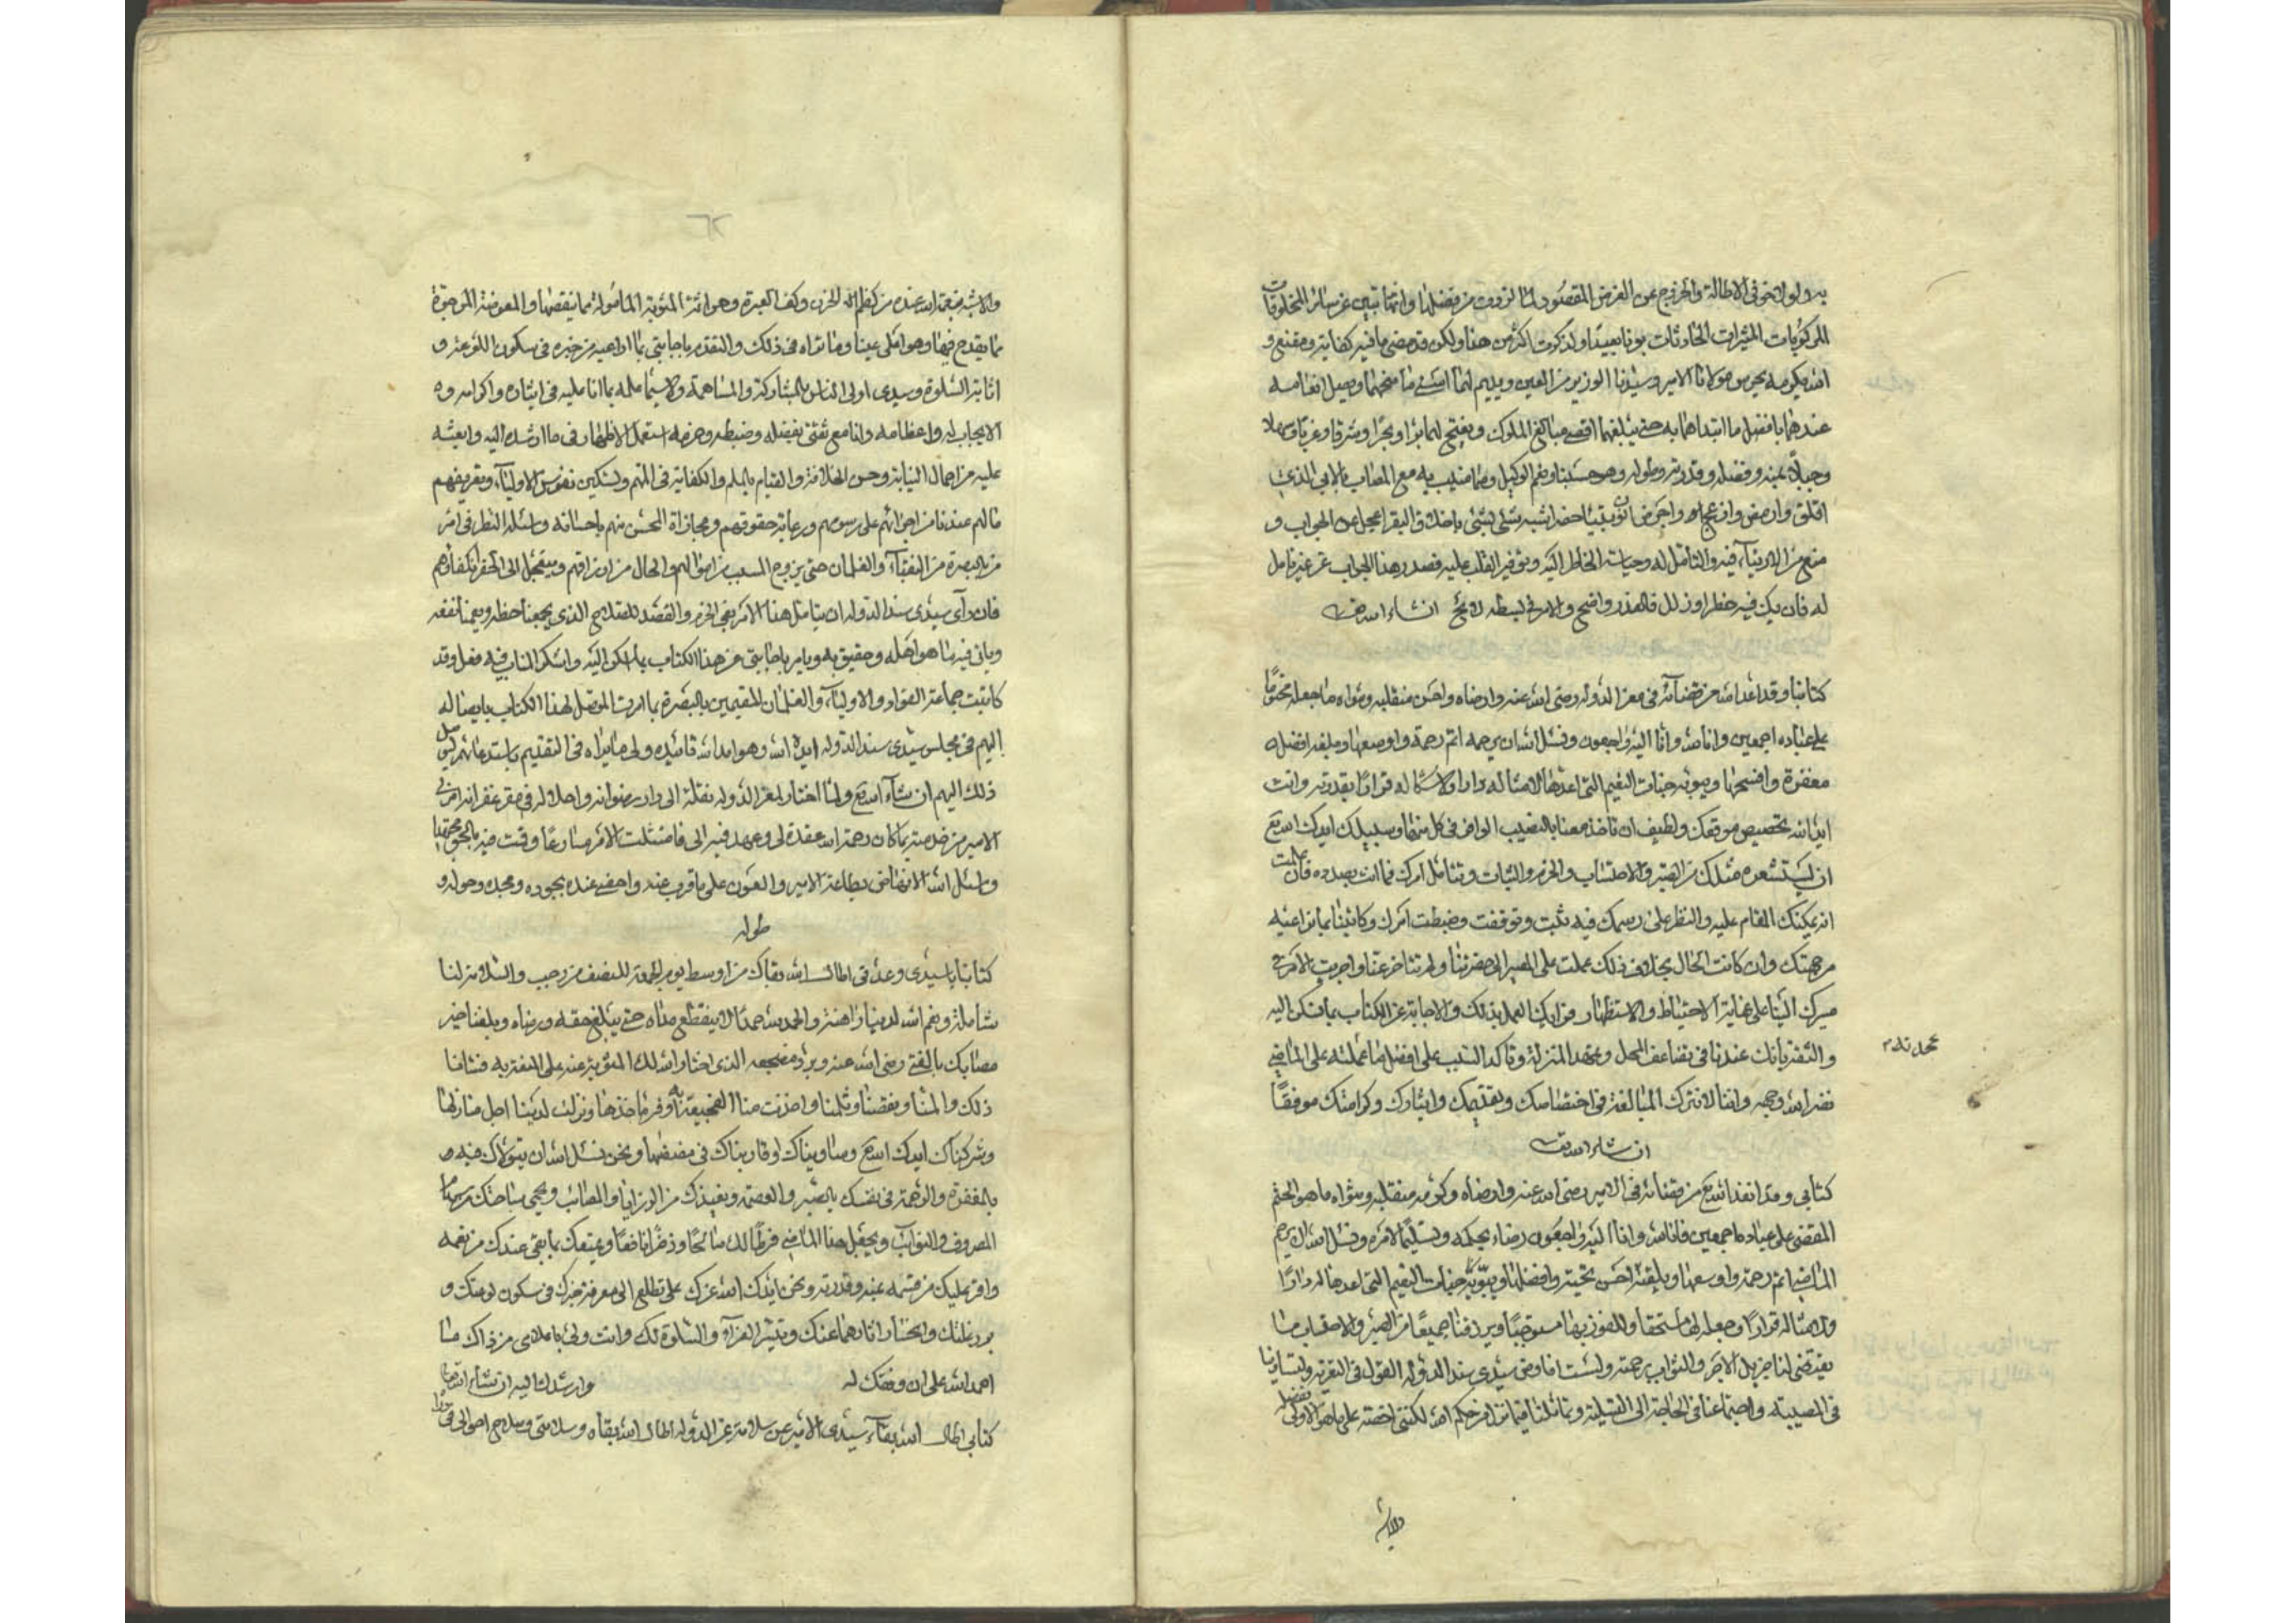 به ولولا خوفي الاطالة والخروج عن الغرض المقصود لما لزدت من فضلها وانها تبين عن سائر المخلوقات
المركوبات المثيرات الحادثات بونا بعيدا ولذكرت اكثر من هذا ولكن قد مضى ما فيه كفاية ومقنع و
الله بكرمه يحرس مولانا الامير وسيدنا الوزير من العين ويديم لهما اسنى ما منحهما ويصل انعامه
عندهما بافضل ما ابتداهما به حتى يبلغهما اقصى مبالغ الملوك ويفتح لهما برا وبحرا وشرقا وغربا وسهلا
وجبلا بمنه وفضله وقدرته وطوله وهو حسبنا ونعم الوكيل ومما منيت به مع المصاب بالابي الذي
اقلق وارمض وازعج واجرض
منع من الارتياء فيه والتأمل له وحياشة الخاطر اليه وتوفير القلب عليه فصدر هذا الجواب عن غير تامل
له فان يك فيه خطأ او زلل فالعذر واضح والامر في بسطه لائح انشاء الله تعالى
كتابنا وقد انفذ الله من قضائه في معز الدوله رضي الله عنه وارضاه واحسن منقلبه ومثواه ما جعله محتوما
على عباده اجمعين وانا لله وانا اليه راجعون ونسئل الله ان يرحمه اتم رحمة واوسعها ويبلغه افضل
مغفرة وافسحها ويبوئه جنات النعيم التي اعدها لامثاله دارا ولاشكاله قرارا بقدرته وانت
ايدك الله بخصيص موقعك ولطيف ان تاخذ معنا بالنصيب الوافي في كل منها وسبيلك ايدك الله تع
ان يستشعره مثلك من الصبر والاحتساب والحزم والثبات وتتامل امرك فيما انت بصدده فان علمت
انه يمكنك المقام عليه والنظر على رسمك فيه ثبت وتوقفت وضبطت امرك وكاتبنا بما نراعيه
من جهتك وان كانت الحال بخلاف ذلك عملت على المصير الى حضرتنا ولم تتاخر عنا واجريت الامر في
مسيرك الينا على غاية الاحتياط والاستظهار فرايك العمل بذلك والاجابة عن الكتاب بما نسكن اليه
والثقة بانك عندنا في تضاعف المحل وتمهد المنزلة وتاكد السبب على افضل ما عملته على الماضي
نضر الله وجهه واننا لا نترك المبالغة في اختصاصك وتقديمك وايثارك وكرامتك موفقا
ان شاء الله تعالى
كتابي وقد انفذ الله تع من قضائه في الامير رضي الله عنه وارضاه وكرم منقلبه ومثواه ما هو الحتم
المقضي على عباده اجمعين فانا لله وانا اليه راجعون رضاء بحكمه وتسليما لامره ونسئل الله ان يرحم
الماضي اتم رحمة واوسعها ويلقيه احسن تحية وافضلها ويبوئه جنات النعيم التي اعدها له دارا
ولامثاله قرارا وجعله لها مستحقا وللفوز بها مستوجبا ويرزقنا جميعا من الصبر والاحتساب ما
يقتضي لنا جزيل الاجر والثواب برحمته ولست افاوض سيدي سند الدوله القول في التعزية ولتساوينا
في المصيبة واجتماعنا في الحاجة الى التسلية وتماثلنا فيما نزل من حكم الله لكنني احضه على ما هو الاولى بفضله
والاشبه
والاشبه بنعمة الله عنده من كظم الحزن وكف العبرة وحراسة المثوبة المامولة مما ينقصها والمعوضة المرجوة
مما يقدح فيها وهو اعلى عينا وما نراه في ذلك والتقدم باجابتي بما اراعيه من خبره في سكون اللوعة و
اثابة السلوة وسيدي اولى الناس بالمشاركة والمساهمة ولا سيما علمه بما انا عليه في ايثاره واكرامه و
الايجاب له واعظامه وانا مع ثقتي بفضله وضبطه وحزمه استعمل الاظهار في ما ارشده اليه وابعثه
عليه من اجمال النيابة وحسن الخلافة والقيام بالملم والكفاية في المهم وتسكين نفوس الاولياء وتعريفهم
ما لهم عندنا من اجرائهم على رسومهم ورعاية حقوقهم ومجازاة المحسن منهم باحسانه واسئله النظر في امر
من بالبصرة من النقباء والغلمان حتى يزوج السبب من اموالهم والحال من ارزاقهم ويتعجل الى الحضرة انكفاؤهم
فان رآى سيدي سند الدوله ان يتامل هذا الامر بعين الحزم والقصد للصلاح الذي يجمعنا حظه ويعمنا نفعه
وياتي فيه ما هو اهله وحقيق به ويامر باجابتي عن هذا الكتاب بما اسكن اليه واشكر المناب فيه فعل وقد
كاتبت جماعة القواد والاولياء والغلمان المقيمين بالبصرة بما امرت الموصل لهذا الكتاب بايصاله
اليهم في مجلس سيدي سند الدوله ايده الله وهو ادام الله تاييده ولي ما يراه في التقديم باستدعائهم ليوصل
ذلك اليهم ان شاء الله تع ولما اختار لمعز الدوله نقلة الى دار رضوانه واحلاله في مقر غفرانه امرني
الامير من خدمته بما كان رحمة الله عقده لي وعهد فيه الى فامتثلت الامر مسارعا وقمت فيه بالحق مجتهدا
واسئل الله الانهاض بطاعة الامير والعون على ما قرب عنده واحظى عنده بجوده ومجده وحوله و
طوله
كتابنا يا سيدي وعدتي اطال الله بقاك من اوسط يوم الجمعة للنصف من رجب والسلامة لنا
شاملة ونعم الله لدينا راهنة والحمد لله حمدا لا ينقطع مداه حتى يبلغ حقه ورضاه وبلغنا خبر
مصابك بالفتى رضي الله عنه وبرد مضجعه الذي اختار الله لك المثوبة عنه على المنعة به فشانا
ذلك والمنا ومضنا وثلمنا واخذت منا الفجيعة به اوفر ماخذها ونزلت لدينا اجل منازلها
وشركناك ايدك الله تع وساويناك او قاربناك في مضضها ونحن نسئل الله ان يتولاك فيه
بالمغفرة والرحمة في نفسك بالصبر والعصمة ويعيذك من الرزايا والمصائب ويحمي ساحتك من سهام
الصروف والنوائب ويجعل هذا الماضي فرطا لك صالحا وذخرا نافعا ويمتعك بما بقي عندك من نعمه
وافر عليك من قسمه بمنه وقدرته ونحن ايدك الله عزك على تطلع الى معرفة خبرك في سكون لوعتك و
برد غلتك وانحسار اثارهما عنك وتيسر العزاء والسلوة لك وانت ولي باعلامي من ذاك ما
احمد الله على ان وفقك له وارشدك اليه ان شاء الله تعالى
كتابي اطال الله بقاء سيدي الامير عن سلامة عز الدوله اطال الله بقاه وسلامتي وصلاح احوالي في